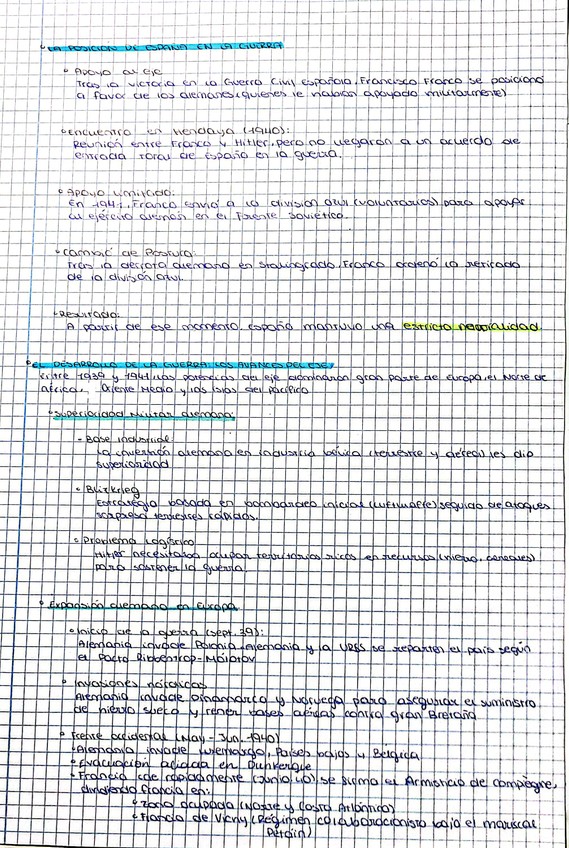 LA POSICIÓN DE ESPAÑA EN LA GUERRA
Apoyo al eje
Tras la victoria en la Guerra Civil Española, Francisco Franco se posicionó
a favor de los alemanes (quienes le habían apoyado militarmente)
Encuentro en Hendaya (1940):
Reunión entre Franco y Hitler, pero no llegaron a un acuerdo de
entrada total de España en la guerra.
Apoyo limitado:
En 1941, Franco envió a la división azul (voluntarios) para apoyar
al ejército alemán en el frente soviético.
Cambio de Postura:
Tras la derrota alemana en Stalingrado, Franco ordenó la retirada
de la división azul.
Resultado:
A partir de ese momento, España mantuvo una estricta neutralidad.
EL DESARROLLO DE LA GUERRA: LOS AVANCES DEL EJE
Entre 1939 y 1941, las potencias del eje dominaron gran parte de Europa, el Norte de
África, Oriente Medio y las islas del Pacífico
Superioridad Militar alemana:
- Base industrial:
La inversión alemana en industria bélica (terrestre y aérea) les dio
superioridad
Blitzkrieg
Estrategia basada en bombardeo inicial (Luftwaffe) seguido de ataques
sorpresa terrestres rápidos.
Problema Logístico
Hitler necesitaba ocupar territorios ricos en recursos (hierro, cereales)
para sostener la guerra
Expansión alemana en Europa
Inicio de la guerra (sept. 39):
Alemania invade Polonia, Alemania y la URSS se reparten el país según
el Pacto Ribbentrop-Mólotov
Invasiones nórdicas
Alemania invade Dinamarca y Noruega para asegurar el suministro
de hierro sueco y tener bases aéreas contra Gran Bretaña
Frente occidental (May - Jun. 1940)
Alemania invade Luxemburgo, Países bajos y Bélgica
Evacuación aliada en Dunkerque
Francia cae rapidamente (Junio, 40) se firma el Armisticio de compiègne,
dividiendo Francia en:
Zona ocupada (Norte y Costa Atlántica)
Francia de Vichy (Régimen colaboracionista bajo el mariscal
Petain)